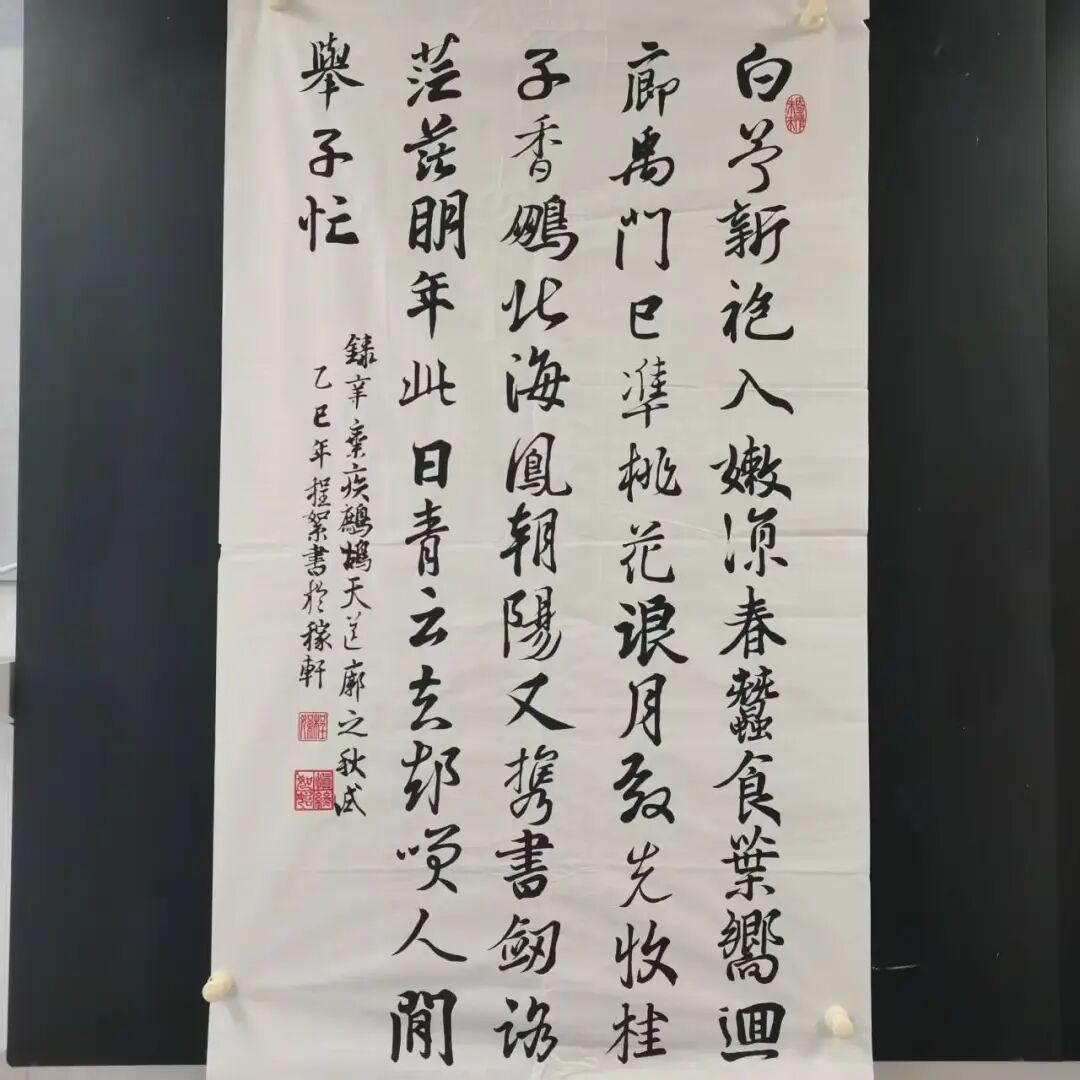 白苧新袍入嫩涼春蠶食葉響迴
廊禹門已準桃花浪月殿先收桂
子香鵬北海鳳朝陽又携書劍路
茫茫明年此日青云去却咲人閒
舉子忙
錄辛棄疾鷓鴣天送廓之秋試
乙巳年程絮書於稼軒
程絮
慎終如始